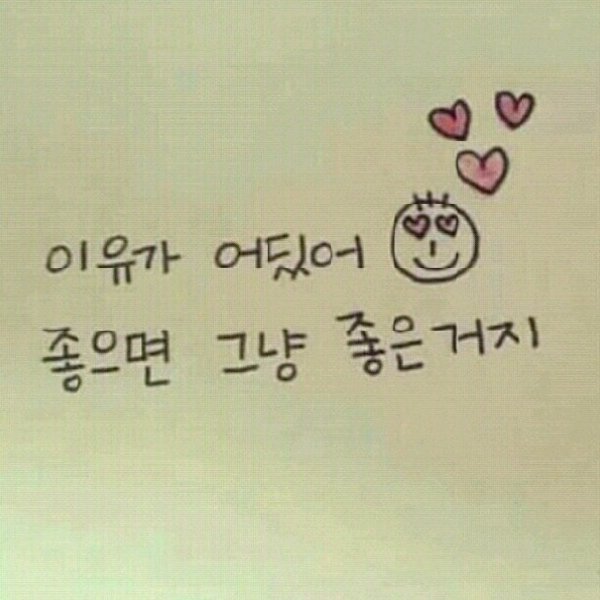 이유가 어딨어
좋으면 그냥 좋은거지